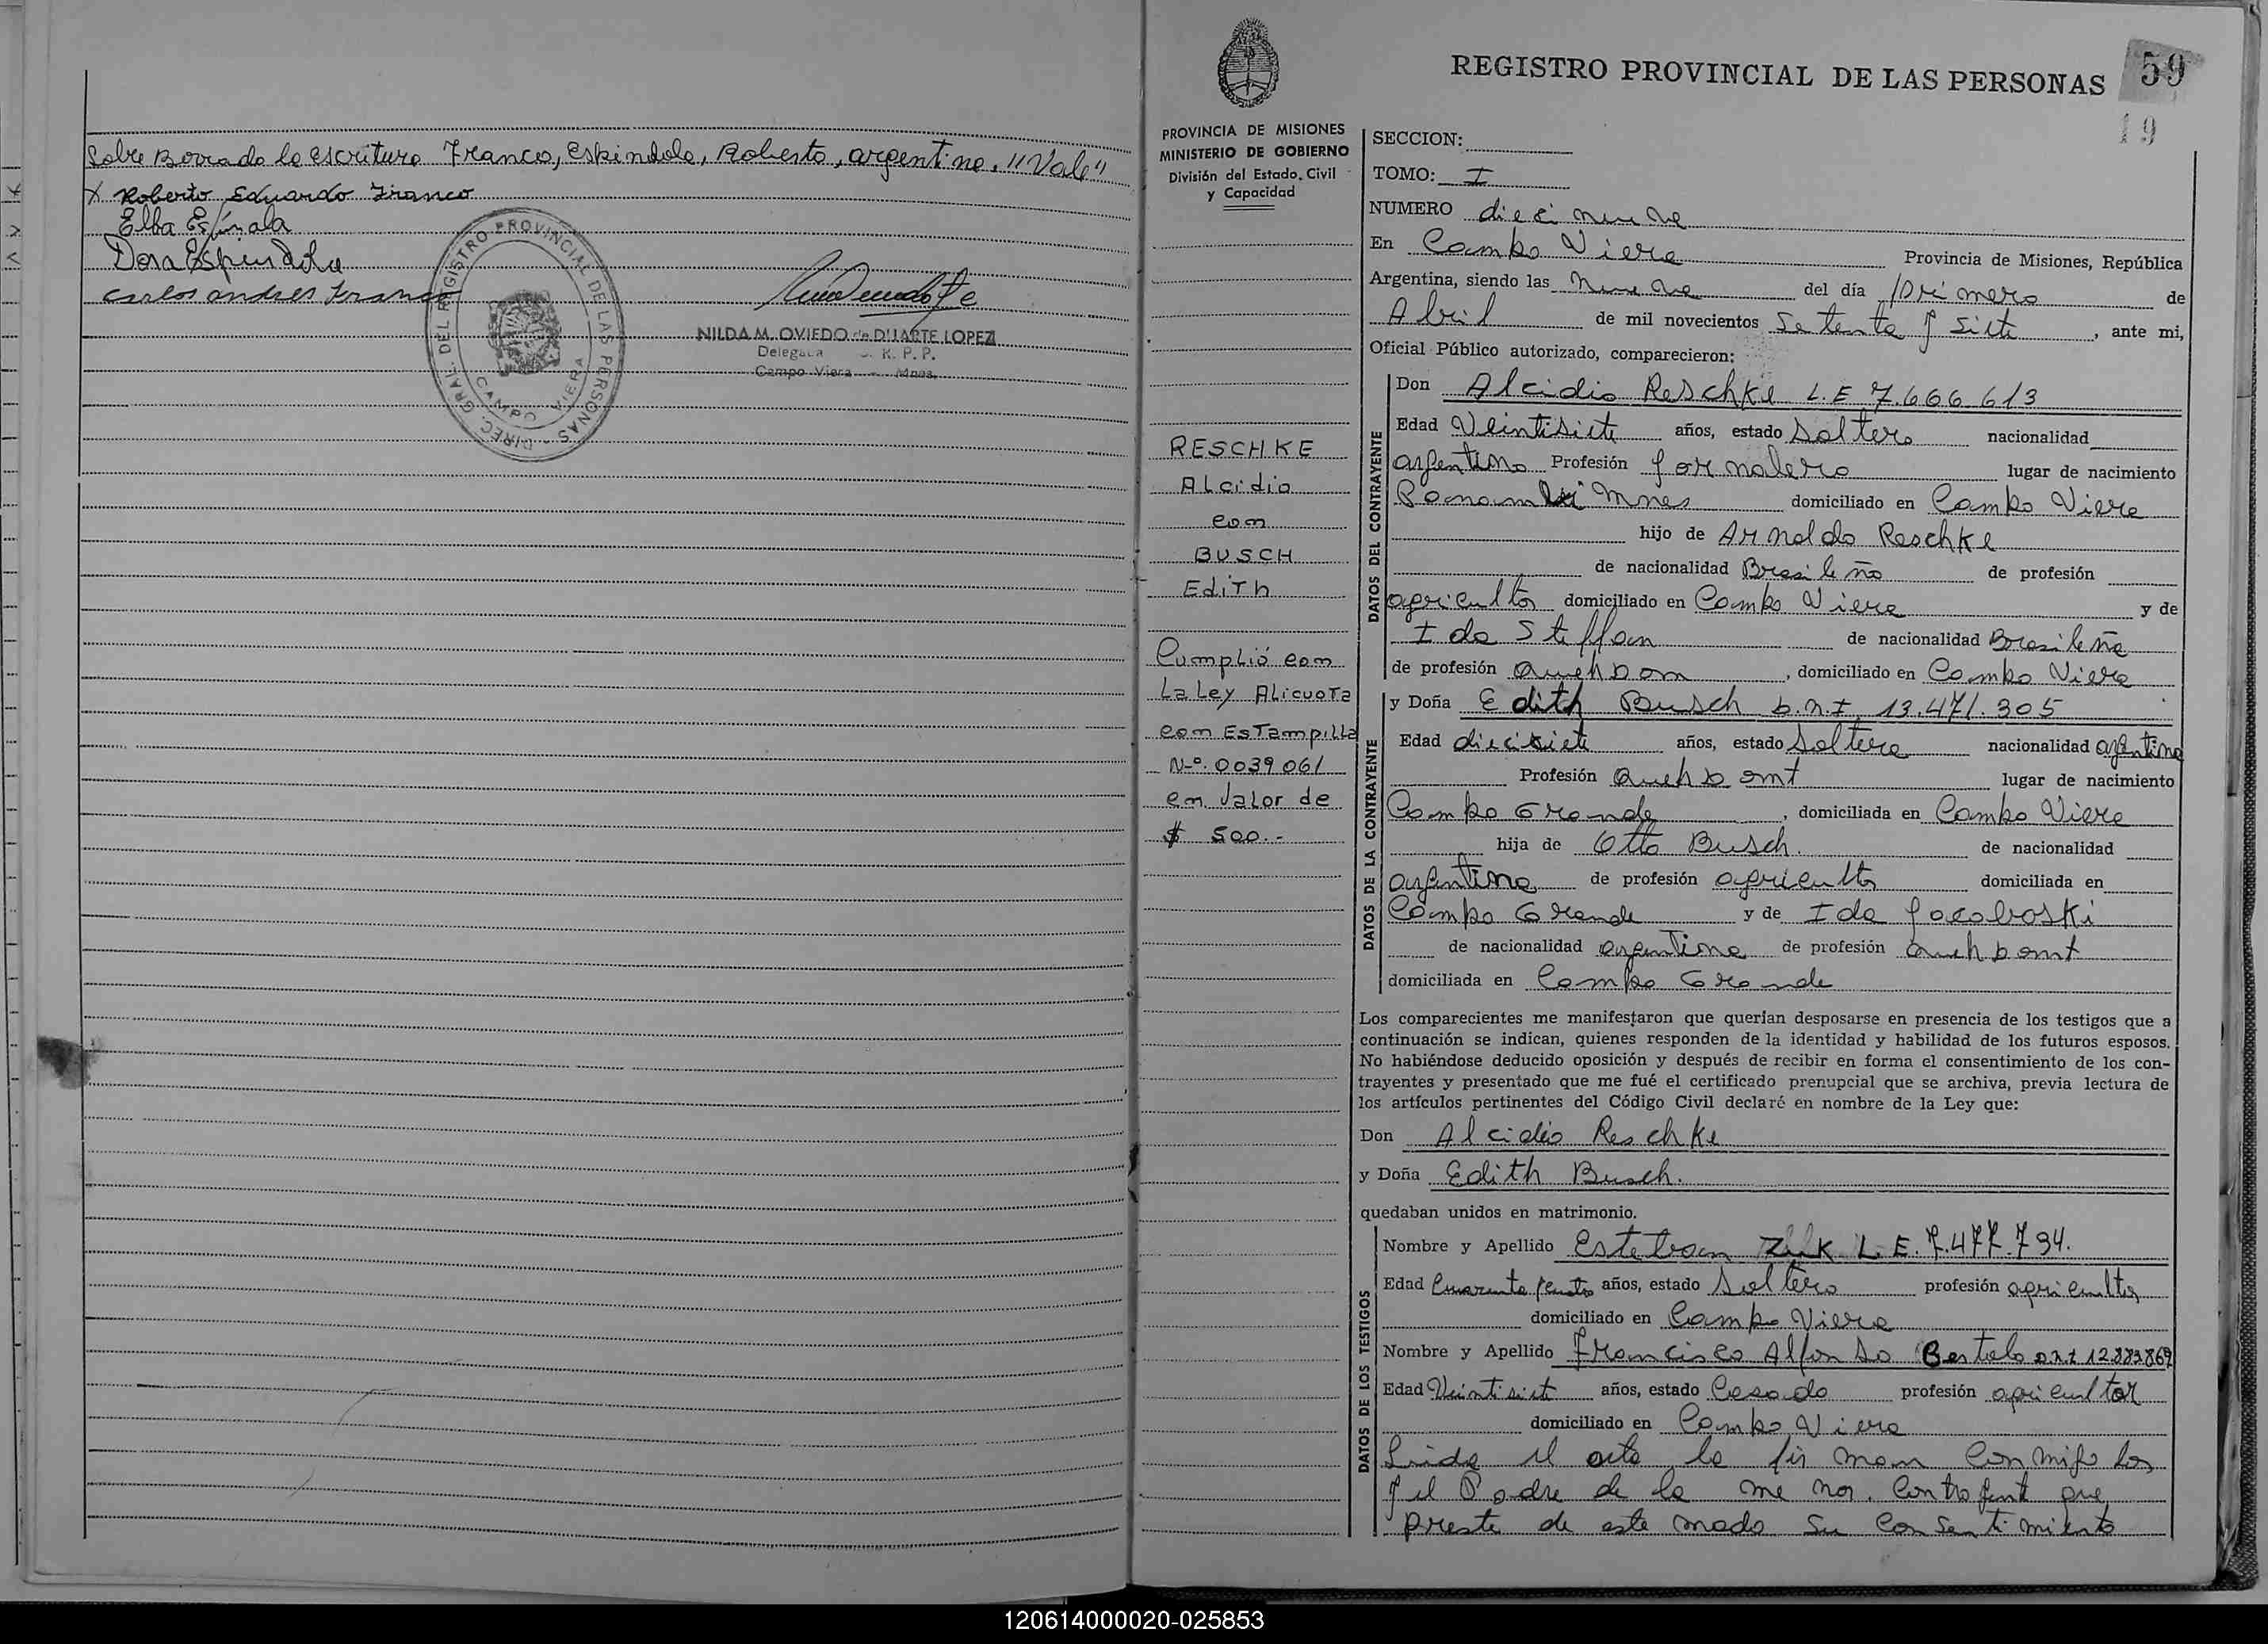 Sobre Borrado la escritura Franco, Espindola, Roberto, argentino. "Vale"
x Roberto Eduardo Franco
Elba Espínola
Dora Espindola
Carlos andres Franco
DIREC. GRAL. DEL REGISTRO PROVINCIAL DE LAS PERSONAS
CAMPO VIERA
NILDA M. OVIEDO de DUARTE LOPEZ
Delegada R. P. P.
Campo Viera - Mnes.
REGISTRO PROVINCIAL DE LAS PERSONAS 59
19
PROVINCIA DE MISIONES
MINISTERIO DE GOBIERNO
División del Estado Civil
y Capacidad
RESCHKE
Alcidio
con
BUSCH
Edith
Cumplió con
La Ley Alicuota
con Estampilla
N-º. 0039061
en Valor de
$ 500.-
SECCION:
TOMO: I
NUMERO diecinueve
En Campo Viera Provincia de Misiones, República
Argentina, siendo las nueve del día primero de
Abril de mil novecientos setenta y siete, ante mi,
Oficial Público autorizado, comparecieron:
DATOS DEL CONTRAYENTE
Don Alcidio Reschke L.E 7.666.613
Edad Veintisiete años, estado soltero nacionalidad
argentino Profesión jornalero lugar de nacimiento
Panambi Mnes domiciliado en Campo Viera
hijo de Arnoldo Reschke
de nacionalidad Brasileño de profesión
agricultor domiciliado en Campo Viera y de
Ida Steffan de nacionalidad Brasileña
de profesión , domiciliado en Campo Viera
DATOS DE LA CONTRAYENTE
y Doña Edith Busch D.N.I. 13.471.305
Edad diecisiete años, estado Soltera nacionalidad argentina
Profesión lugar de nacimiento
Campo Grande, domiciliada en Campo Viera
hija de Otto Busch. de nacionalidad
argentina de profesión agricultor domiciliada en
Campo Grande y de Ida Jacoboski
de nacionalidad argentina de profesión
domiciliada en Campo Grande
Los comparecientes me manifestaron que querían desposarse en presencia de los testigos que a
continuación se indican, quienes responden de la identidad y habilidad de los futuros esposos.
No habiéndose deducido oposición y después de recibir en forma el consentimiento de los con-
trayentes y presentado que me fué el certificado prenupcial que se archiva, previa lectura de
los artículos pertinentes del Código Civil declaré en nombre de la Ley que:
Don Alcidio Reschke
y Doña Edith Busch.
quedaban unidos en matrimonio.
DATOS DE LOS TESTIGOS
Nombre y Apellido Esteban Zuk L.E. 7.477.794.
Edad Cuarenta y cuatro años, estado Soltero profesión agricultor
domiciliado en Campo Viera
Nombre y Apellido Francisco Alfonso Bertolo D.N.I 12.883869
Edad Veintisiete años, estado Casado profesión agricultor
domiciliado en Campo Viera
Leida el acta la firman conmigo los
y el Padre de la menor. Contrayente que
preste de este modo su consentimiento
120614000020-025853